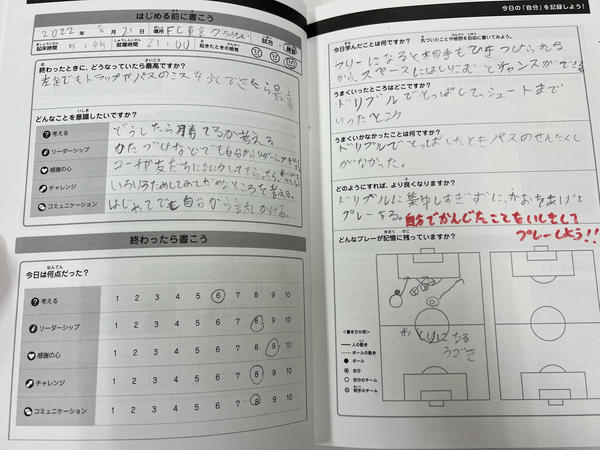 はじめる前に書こう
2022年 6月21日 場所 FC東京グラウンド 試合
起床時間 5:45 就寝時間 21:00 起きたときの感覚
終わったときに、どうなっていたら最高ですか?
左足でもトラップやパスのミスなくできたら最高
どんなことを意識したいですか?
考える どうしたら勝てるか考える
リーダーシップ かたづけなどでも自分から
感謝の心 コーチや友だちになにかしてもらったら
チャレンジ いろいろためしてみてだめなところを考える。
コミュニケーション はじめてでも自分から話しかける。
終わったら書こう
今日は何点だった?
考える 1 2 3 4 5 6 7 8 9 10
リーダーシップ 1 2 3 4 5 6 7 8 9 10
感謝の心 1 2 3 4 5 6 7 8 9 10
チャレンジ 1 2 3 4 5 6 7 8 9 10
コミュニケーション 1 2 3 4 5 6 7 8 9 10
今日の「自分」を記録しよう!
今日学んだことは何ですか? 気づいたことや感想を自由に書いてみよう。
フリーになると相手もひきつけられる
から、スペースにはしりこむとチャンスができる
うまくいったところはどこですか?
ドリブルでとっぱして、シュートまで
いったところ
うまくいかなかったことは何ですか?
ドリブルでとっぱしたときパスのせんたくし
がなかった。
どのようにすれば、より良くなりますか?
ドリブルに集中しすぎずに、かおをあげて
プレーする。
自分でかんじたことをいしきして
プレーしよう!!
どんなプレーが記憶に残っていますか?
<書き方の例>
人の動き
ボールの動き
ボール
自分
自分のチーム
相手のチーム
おとりになる
うごき